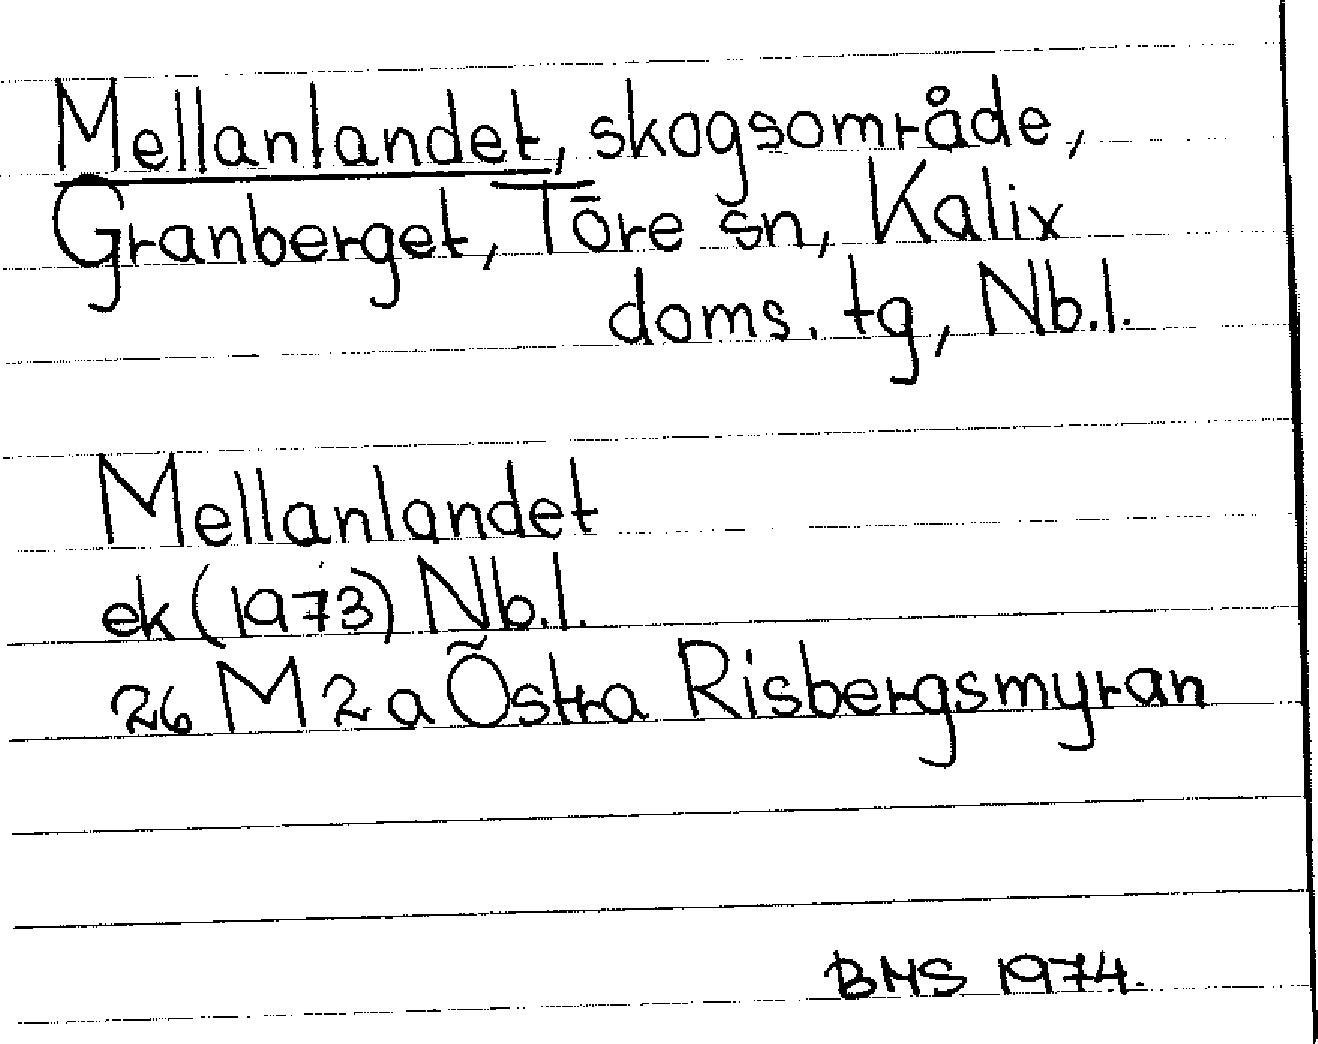 Mellanlandet, skogsområde,
Granberget, Töre sn, Kalix
doms. tg, Nb.l.
Mellanlandet
ek (1973) Nb.l.
26 M 2 a Östra Risbergsmyran
BMS 1974.